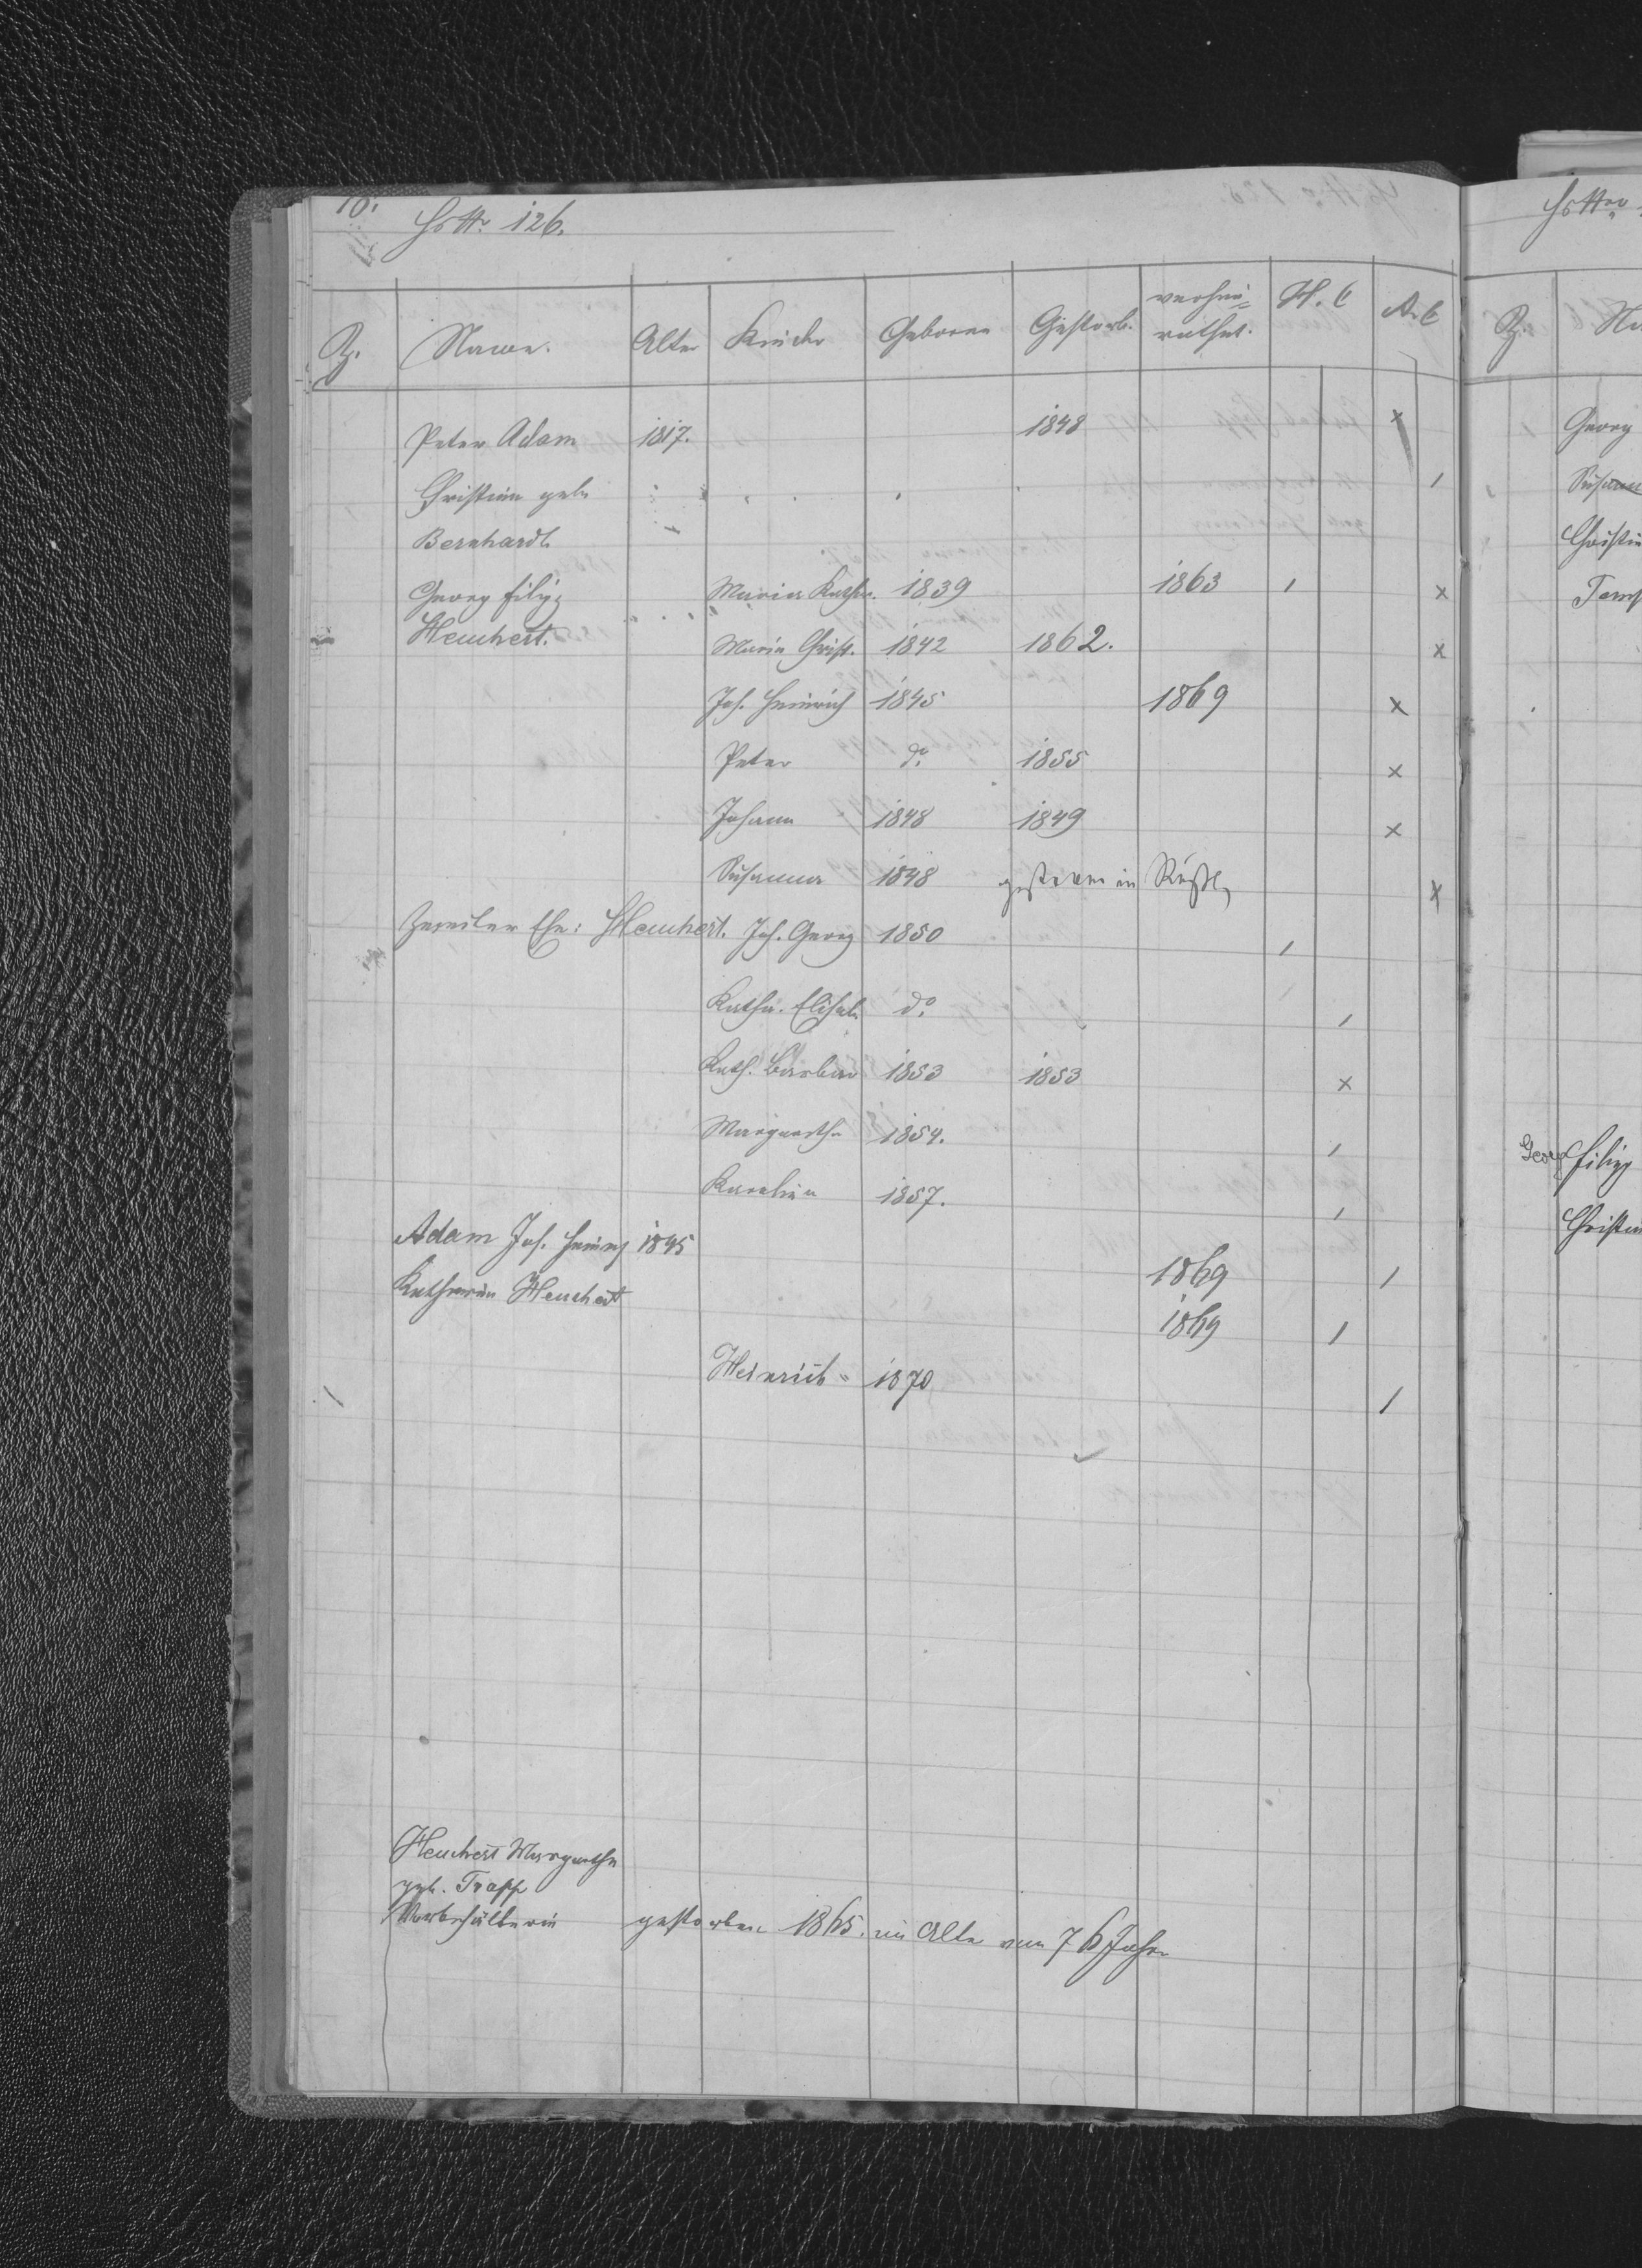 10.
Hs Nr 126.
Z. Name. Alter Kinder Geboren Gestorb. verhei= rathet. H. C A. C
Peter Adam 1817. 1848 x
Christina geb. /
Bernhardt
Georg Filipp Maria Kath. 1839 1863 / x
Heuchert. Maria Christ. 1842 1862. x
Joh. Heinrich 1845 1869 x
Peter do. 1855 x
Johann 1848 1849 x
Susanna 1848 gestorben in Rußl. x
Zweiter Ehe: Heuchert. Joh. Georg 1850 /
Katha. Elisab. do. /
Kath. Barbar 1853 1853 x
Margaretha 1854. /
Karolina 1857. /
Adam Joh. Heinrich 1845 1869 /
Katharina Heuchert 1869 /
Heinrich 1870 /
Heuchert Margaretha
geb. Trapp
Vorbehälterin gestorben 1865. im Alter von 76 Jahren
Hs Nro
Z. Na
Georg
Susanna
Christin
Georg Filipp
Christin